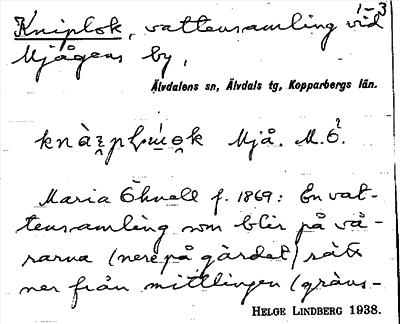 1-3
Kniplok, vattensamling vid
Mjågens by,
Älvdalens sn, Älvdals tg, Kopparbergs län.
Mjå. M.Ö.
Maria Öhnell f. 1869: En vat-
tensamling som blir på vå-
rarna (nere på gärdet) rätt
ner från mittlingen (gräns-
HELGE LINDBERG 1938.